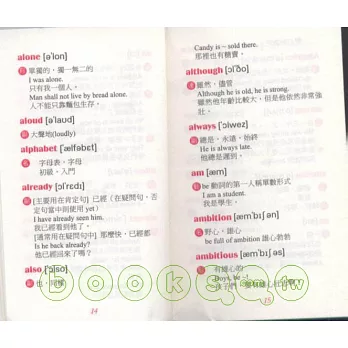 alone [ə'lon]
形 單獨的，獨一無二的
I was alone.
只有我一個人。
Man shall not live by bread alone.
人不能只靠麵包生存。
aloud [ə'laud]
副 大聲地(loudly)
alphabet ['ælfəbɛt]
名 字母表，字母
初級，入門
already [ɔl'rɛdɪ]
副 [主要用在肯定句] 已經（在疑問句，否
定句當中則使用 yet）
I have already seen him.
我已經看到他了。
[通常用在疑問句中] 那麼快，已經都
Is he back already?
他已經回來了嗎？
also ['ɔlso]
副 也，同樣
14
Candy is ~ sold there.
那裡也有糖賣。
although [ɔl'ðo]
連 雖然，儘管
Although he is old, he is strong.
雖然他年齡比較大，但是他依然非常強
壯。
always ['ɔlwez]
副 總是，永遠，始終
He is always late.
他總是遲到。
am [æm]
動 be 動詞的第一人稱單數形式
I am a student.
我是學生。
ambition [æm'bɪʃən]
名 野心，雄心
be full of ambition 雄心勃勃
ambitious [æm'bɪʃəs]
形 有雄心的
Boys, be
孩子們
15
books.com.tw